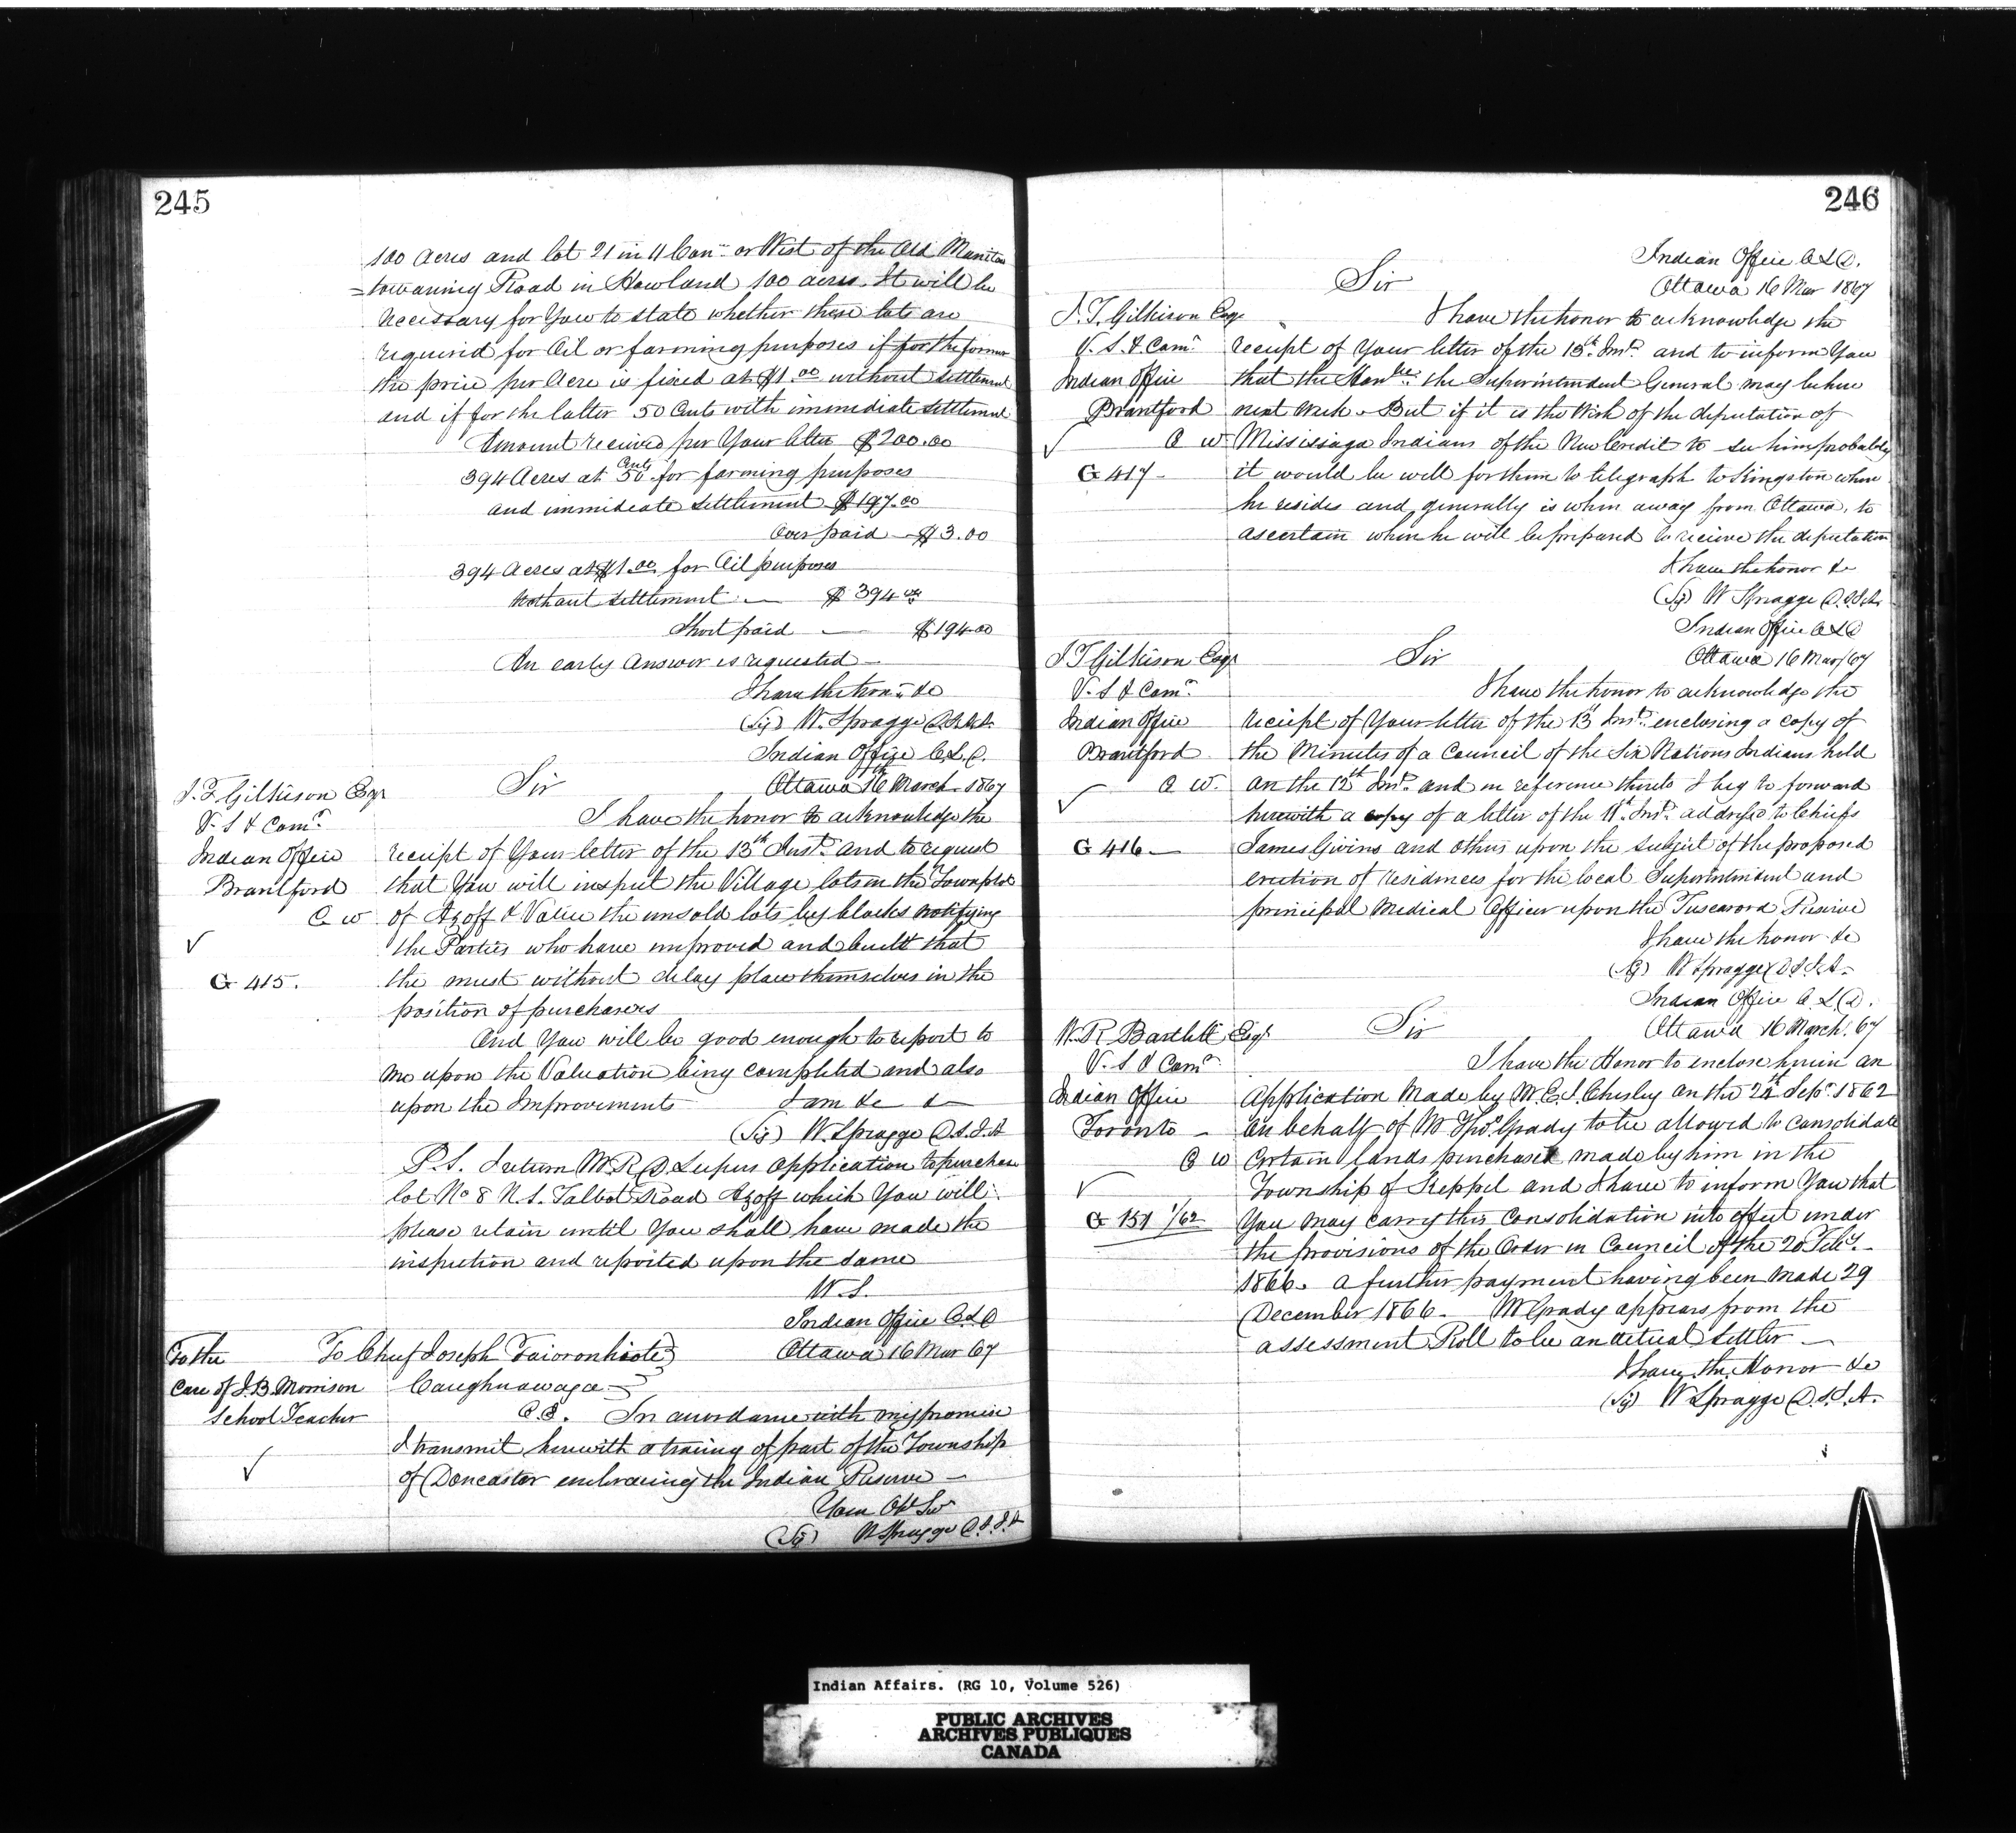 245
100 Acres and lot 21 in 11 Con. or West of the Old Manito
=towaning Road in Howland 100 acres. It will be
necessary for You to state whether these lots are
required for Oil or farming purposes if for the former
the price per Acre is fixed at $1.00 without settlement
and if for the latter 50 Cents with immediate settlement
Amount received per Your letter $200.00
394 Acres at 50 Cents for farming purposes
and immediate settlement $197.00
Over paid $3.00
394 Acres at $1.00 for Oil purposes
Without settlement — $394.00
Short paid — $194.00
An early Answer is requested —
I have the honr. &c
(Sig) W. Spragge D.S.I.A.
Indian Office C.L.D.
Ottawa 16th March 1867
J. T. Gilkison Esqr
V. S & Comr.
Indian Office
Brantford
C W
✓
G 415.
Sir
I have the honor to acknowledge the
receipt of Your letter of the 13th Inst. and to request
that You will inspect the Village lots in the Townplot
of Azoff & Value the unsold lots by blocks notifying
the Parties who have improved and built that
the must without delay place themselves in the
position of purchasers
And You will be good enough to report to
me upon the Valuation being completed and also
upon the Improvements I am &c &c
(Sig) W. Spragge D.S.I.A
P.S. I return W. R. D. application to purchase
lot No 8 N S. Talbot Road Azoff which You will
please retain until You shall have made the
inspection and reported upon the same
W. S.
Indian Office C.L.D
Ottawa 16 Mar 67
To the
Care of J. B. Morrison
School Teacher
✓
To Chief Joseph
Caughnawaga
C.E. In accordance with my promise
I transmit herewith a tracing of part of the Township
of Doncaster embracing the Indian Reserve —
Your Obt Svt
(Sig) W Spragge D.S.I.A
246
Indian Office C L D.
Ottawa 16 Mar 1867
Sir
J. T. Gilkison Esqr
V. S. & Comr.
Indian Office
Brantford
C W
✓
G 417 -
I have the honor to acknowledge the
receipt of Your letter of the 13th Inst. and to inform You
that the Honble. the Superintendent General may be here
next Week. But if it is the Wish of the deputation of
Mississaga Indians of the New Credit to see him probably
it would be well for them to telegraph to Kingston where
he resides and generally is when away from Ottawa, to
ascertain when he will be prepared to receive the deputation
I have the honor &c
(Sg) W Spragge D.S.I.A.
Indian Office C L D
Ottawa 16 Mar/67
J T Gilkison Esqr
V. S & Comr.
Indian Office
Brantford
C W.
✓
G 416 —
Sir
I have the honor to acknowledge the
receipt of Your letter of the 13 Inst. enclosing a copy of
the Minutes of a Council of the Six Nations Indians held
on the 12th Inst. and in reference thereto I beg to forward
herewith a copy of a letter of the 11th. Inst. addressd to Chiefs
James Givins and others upon the subject of the proposed
erection of residences for the local Superintendent and
principal Medical Officer upon the Tuscarora Reserve
I have the honor &c
(Sg) W Spragge D.S.I.A.
Indian Office C. L D.
Ottawa 16 March. 67
W. R Bartlett Esqr.
V. S & Comr
Indian Office
Toronto —
C W
✓
G 151 1/62
Sir
I have the Honor to enclose herein an
Application Made by W. E. S. Chesley on the 24th Sepr. 1862
on behalf of Mr Thos. Grady to be allowed to consolidate
Certain lands purchased made by him in the
Township of Keppel and I have to inform You that
You may carry this consolidation into effect under
the provisions of the Order in Council of the 20 Feby. —
1866. a further payment having been made 29
December 1866. Mr Grady appears from the
assessment Roll to be an actual Settler —
I have the Honor &c
(Sg) W Spragge D.S.I.A.
Indian Affairs. (RG 10, Volume 526)
PUBLIC ARCHIVES
ARCHIVES PUBLIQUES
CANADA